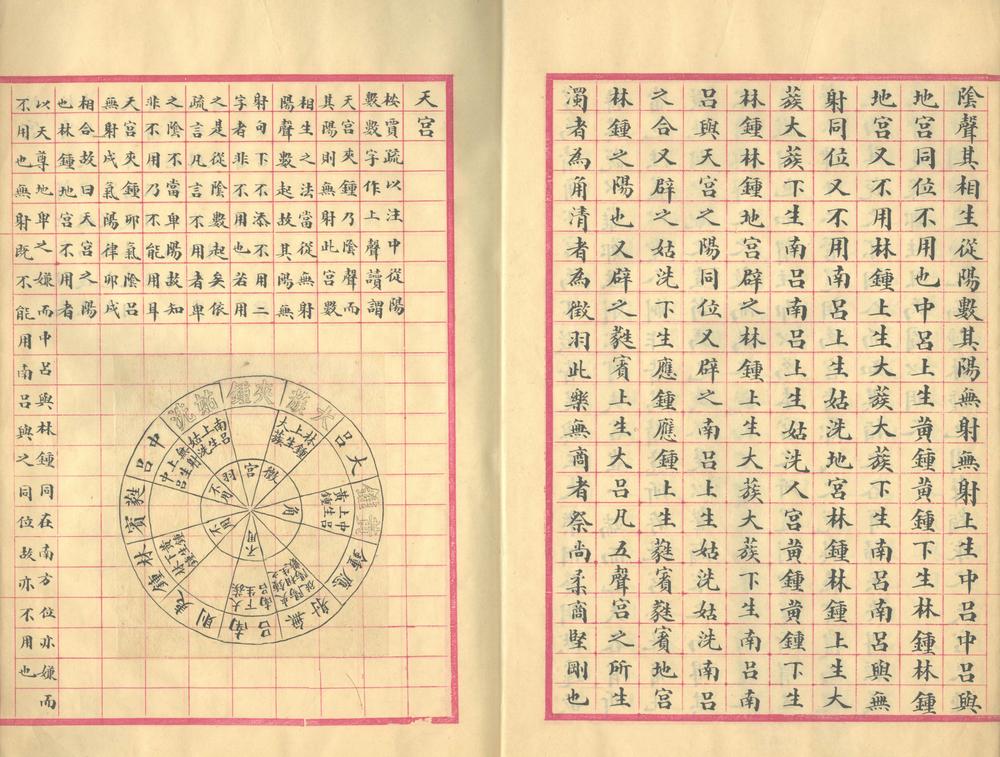 陰聲其相生從陽數其陽無射無射上生中呂中呂與
地宮同位不用也中呂上生黃鍾黃鍾下生林鍾林鍾
地宮又不用林鍾上生大蔟大蔟下生南呂南呂與無
射同位又不用南呂上生姑洗地宮林鍾林鍾上生大
蔟大蔟下生南呂南呂上生姑洗人宮黃鍾黃鍾下生
林鍾林鍾地宮辟之林鍾上生大蔟大蔟下生南呂南
呂與天宮之陽同位又辟之南呂上生姑洗姑洗南呂
之合又辟之姑洗下生應鍾應鍾上生蕤賓蕤賓地宮
林鍾之陽也又辟之蕤賓上生大呂凡五聲宮之所生
濁者為角清者為徵羽此樂無商者祭尚柔商堅剛也
天宮
按賈疏以注中從陽
數數字作上聲讀謂
天宮夾鍾乃陰聲而
其陽則無射此宮數
相生之法當從無射
陽聲數起故其陽無
射句下不添不用二
字者非不用也若用
之是從陰數起矣依
疏言凡言不用者卑
之陰不當卑陽故知
非不用乃不能用耳
天宮夾鍾卯氣陰呂
無射戌氣陽律卯戌
相合故曰天宮之陽
也林鍾地宮不用者
以天尊地卑之嫌而中呂與林鍾同在南方位亦嫌而
不用也無射既不能用南呂與之同位故亦不用也
大呂
大蔟
夾鍾
姑洗
中呂
蕤賓
林鍾
夷則
南呂
無射
應鍾
黃鍾
林鍾上生大蔟
南呂上生姑洗
無射上生中呂
黃鍾下生林鍾
大蔟下生南呂
中呂上生黃鍾
宮
徵
角
不用
不用
不用
羽